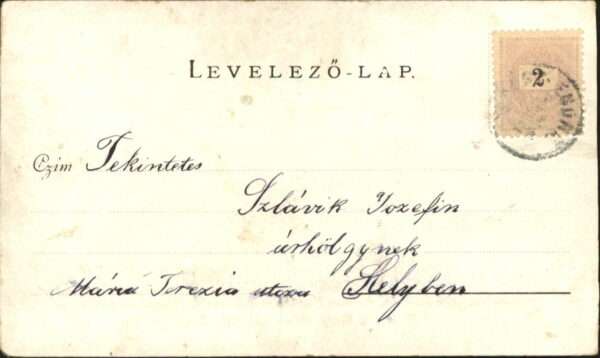 LEVELEZŐ-LAP.
2
Czím Tekintetes
Szlávik Jozefin
úrhölgynek
Mária Terezia utcza Helyben